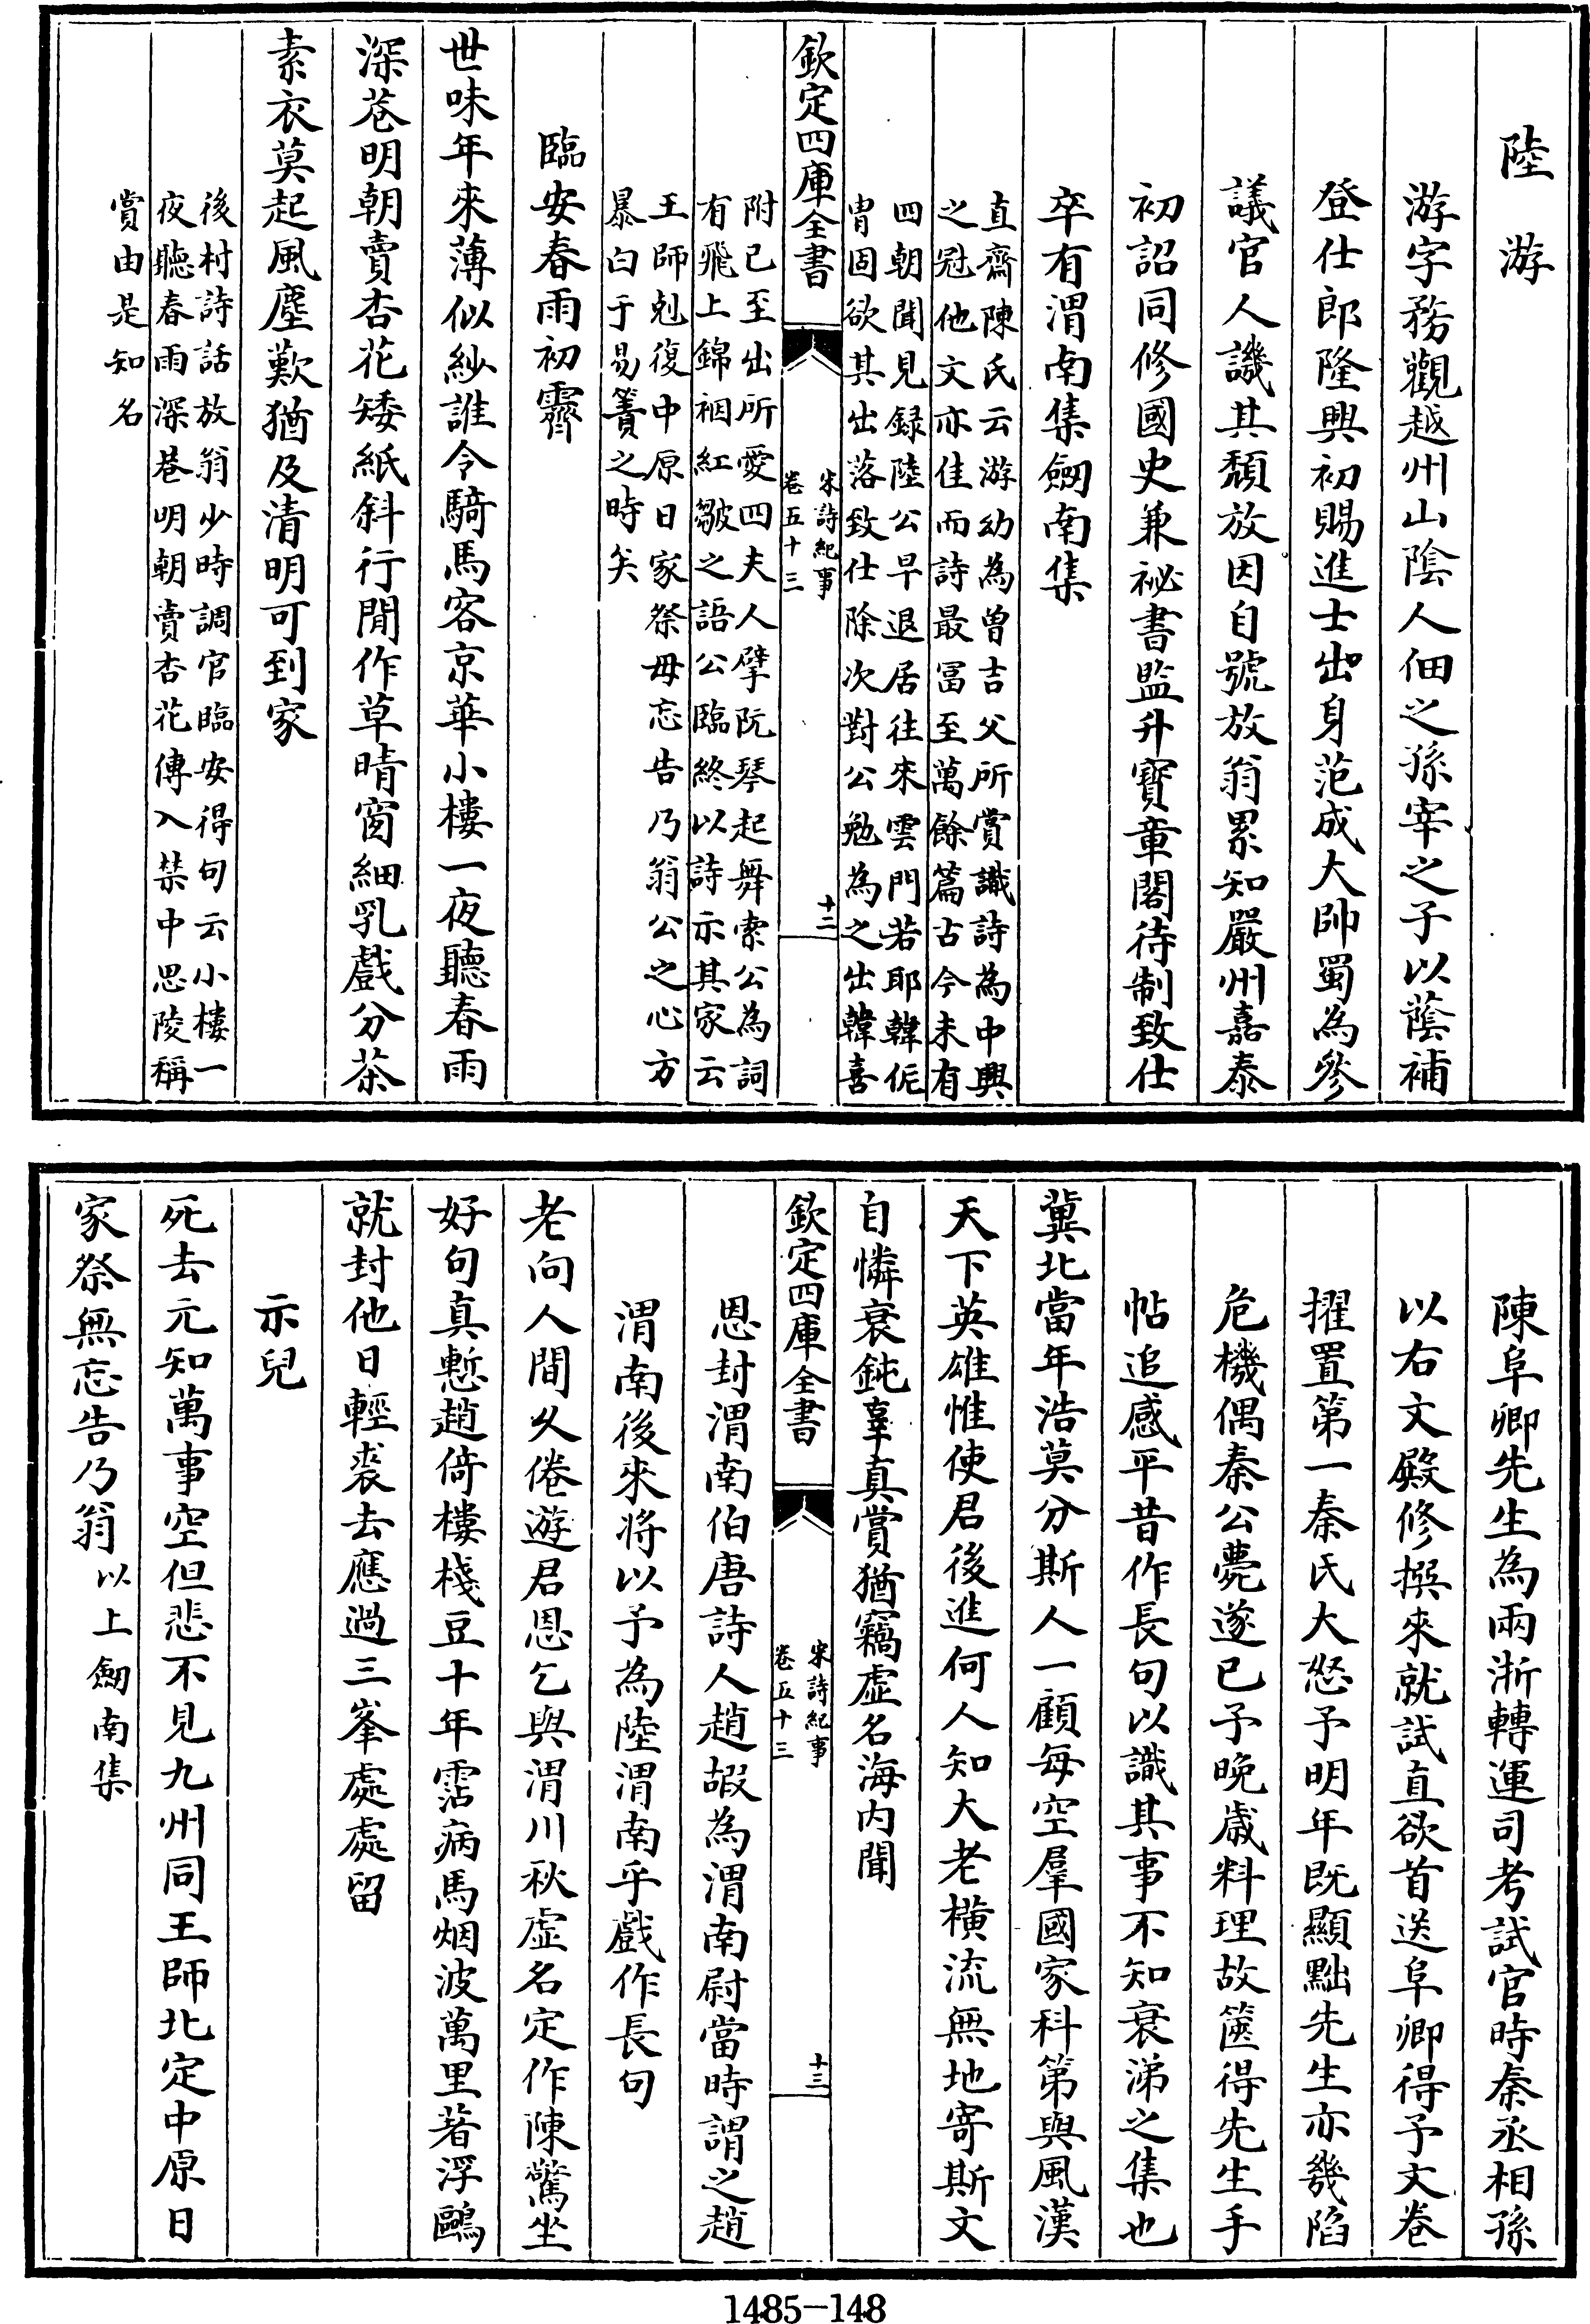 陸游
游字務觀越州山陰人佃之孫宰之子以蔭補
登仕郎隆興初賜進士出身范成大帥蜀為參
議官人譏其頹放因自號放翁累知嚴州嘉泰
初詔同修國史兼祕書監升寶章閣待制致仕
卒有渭南集劒南集
直齋陳氏云游幼為曾吉父所賞識詩為中興
之冠他文亦佳而詩最冨至萬餘篇古今未有
四朝聞見録陸公早退居往來雲門若耶韓侂
胄固欲其出落致仕除次對公勉為之出韓喜
欽定四庫全書
宋詩紀事
卷五十三
十二
附已至出所愛四夫人擘阮琴起舞索公為詞
有飛上錦裀紅皺之語公臨終以詩示其家云
王師剋復中原日家祭毋忘告乃翁公之心方
暴白于易簀之時矣
臨安春雨初霽
世味年來薄似紗誰令騎馬客京華小樓一夜聽春雨
深巷明朝賣杏花矮紙斜行閒作草晴窗細乳戲分茶
素衣莫起風塵歎猶及清明可到家
後村詩話放翁少時調官臨安得句云小樓一
夜聽春雨深巷明朝賣杏花傳入禁中思陵稱
賞由是知名
陳阜卿先生為兩浙轉運司考試官時秦丞相孫
以右文殿修撰來就試直欲首送阜卿得予文卷
擢置第一秦氏大怒予明年既顯黜先生亦幾陷
危機偶秦公薨遂已予晚歲料理故篋得先生手
帖追感平昔作長句以識其事不知衰涕之集也
冀北當年浩莫分斯人一顧每空羣國家科第與風漢
天下英雄惟使君後進何人知大老橫流無地寄斯文
自憐衰鈍辜真賞猶竊虛名海内聞
欽定四庫全書
宋詩紀事
卷五十三
十三
恩封渭南伯唐詩人趙嘏為渭南尉當時謂之趙
渭南後來將以予為陸渭南乎戲作長句
老向人間久倦遊君恩乞與渭川秋虛名定作陳驚坐
好句真慙趙倚樓棧豆十年霑病馬烟波萬里著浮鷗
就封他日輕裘去應過三峯處處留
示兒
死去元知萬事空但悲不見九州同王師北定中原日
家祭無忘告乃翁以上劒南集
1485-148